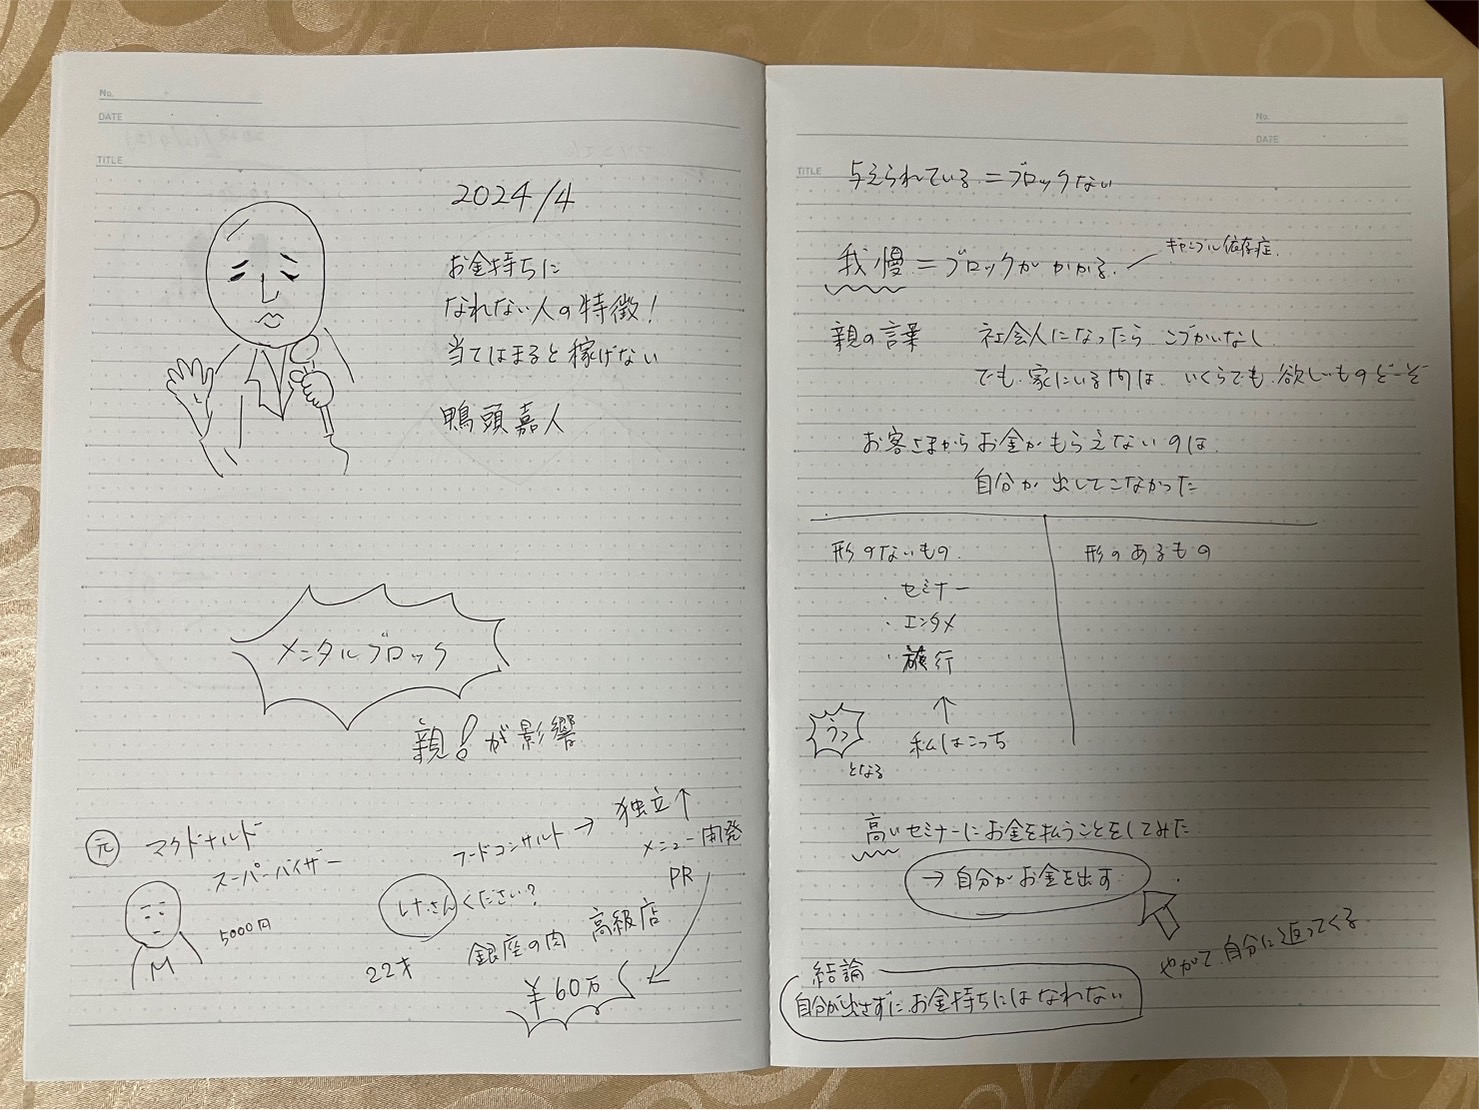 No.
DATE
TITLE
2024/4
お金持ちに
なれない人の特徴!
当てはまると稼げない
鴨頭嘉人
メンタルブロック
親!が影響
元 マクドナルド
スーパーバイザー
5000円
M
フードコンサルト → 独立↑
メニュー開発
PR
ください?
22才
銀座の肉 高級店
¥60万
No.
DATE
TITLE
与えられている=ブロックない
我慢=ブロックがかかる
ギャンブル依存症
親の言葉 社会人になったら こづかいなし
でも、家にいる間は、いくらでも欲しいものどーぞ
お客さまからお金がもらえないのは、
自分が出してこなかった
形のないもの 形のあるもの
・セミナー
・エンタメ
・旅行
↑
うっ 私はこっち
となる
高いセミナーにお金を払うことをしてみた
→自分がお金を出す
やがて、自分に返ってくる
結論
自分が出さずに、お金持ちにはなれない